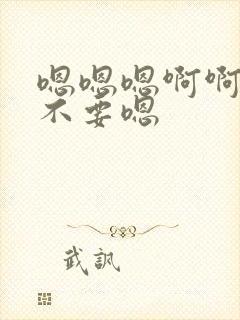 嗯嗯嗯啊啊
不要嗯
武訊